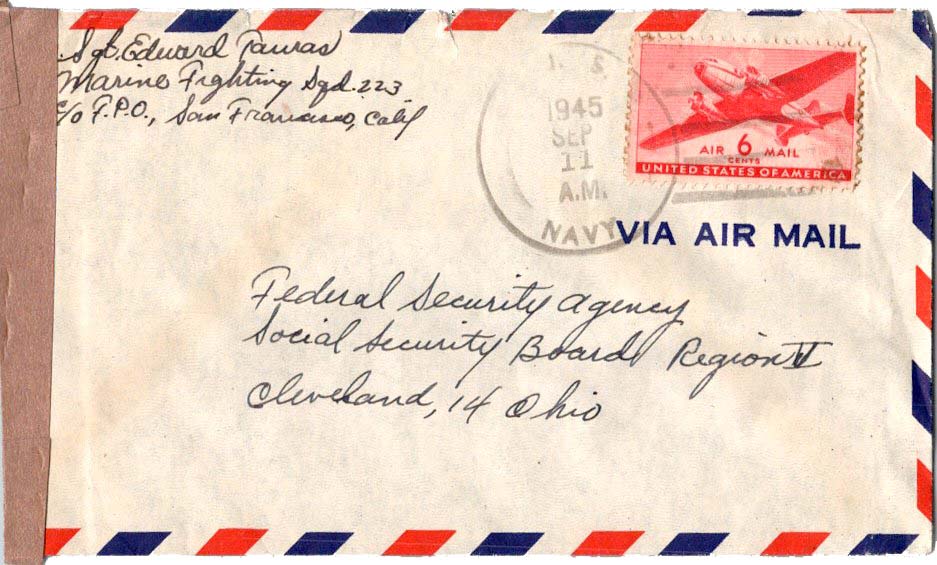 Sgt. Edward Tauras
Marine Fighting Sqd. 223
c/o F.P.O., San Francisco, Calif
U. S.
1945
SEP
11
A.M.
NAVY
AIR 6 MAIL
CENTS
UNITED STATES OF AMERICA
VIA AIR MAIL
Federal Security Agency
Social Security Board, Region V
Cleveland, 14 Ohio